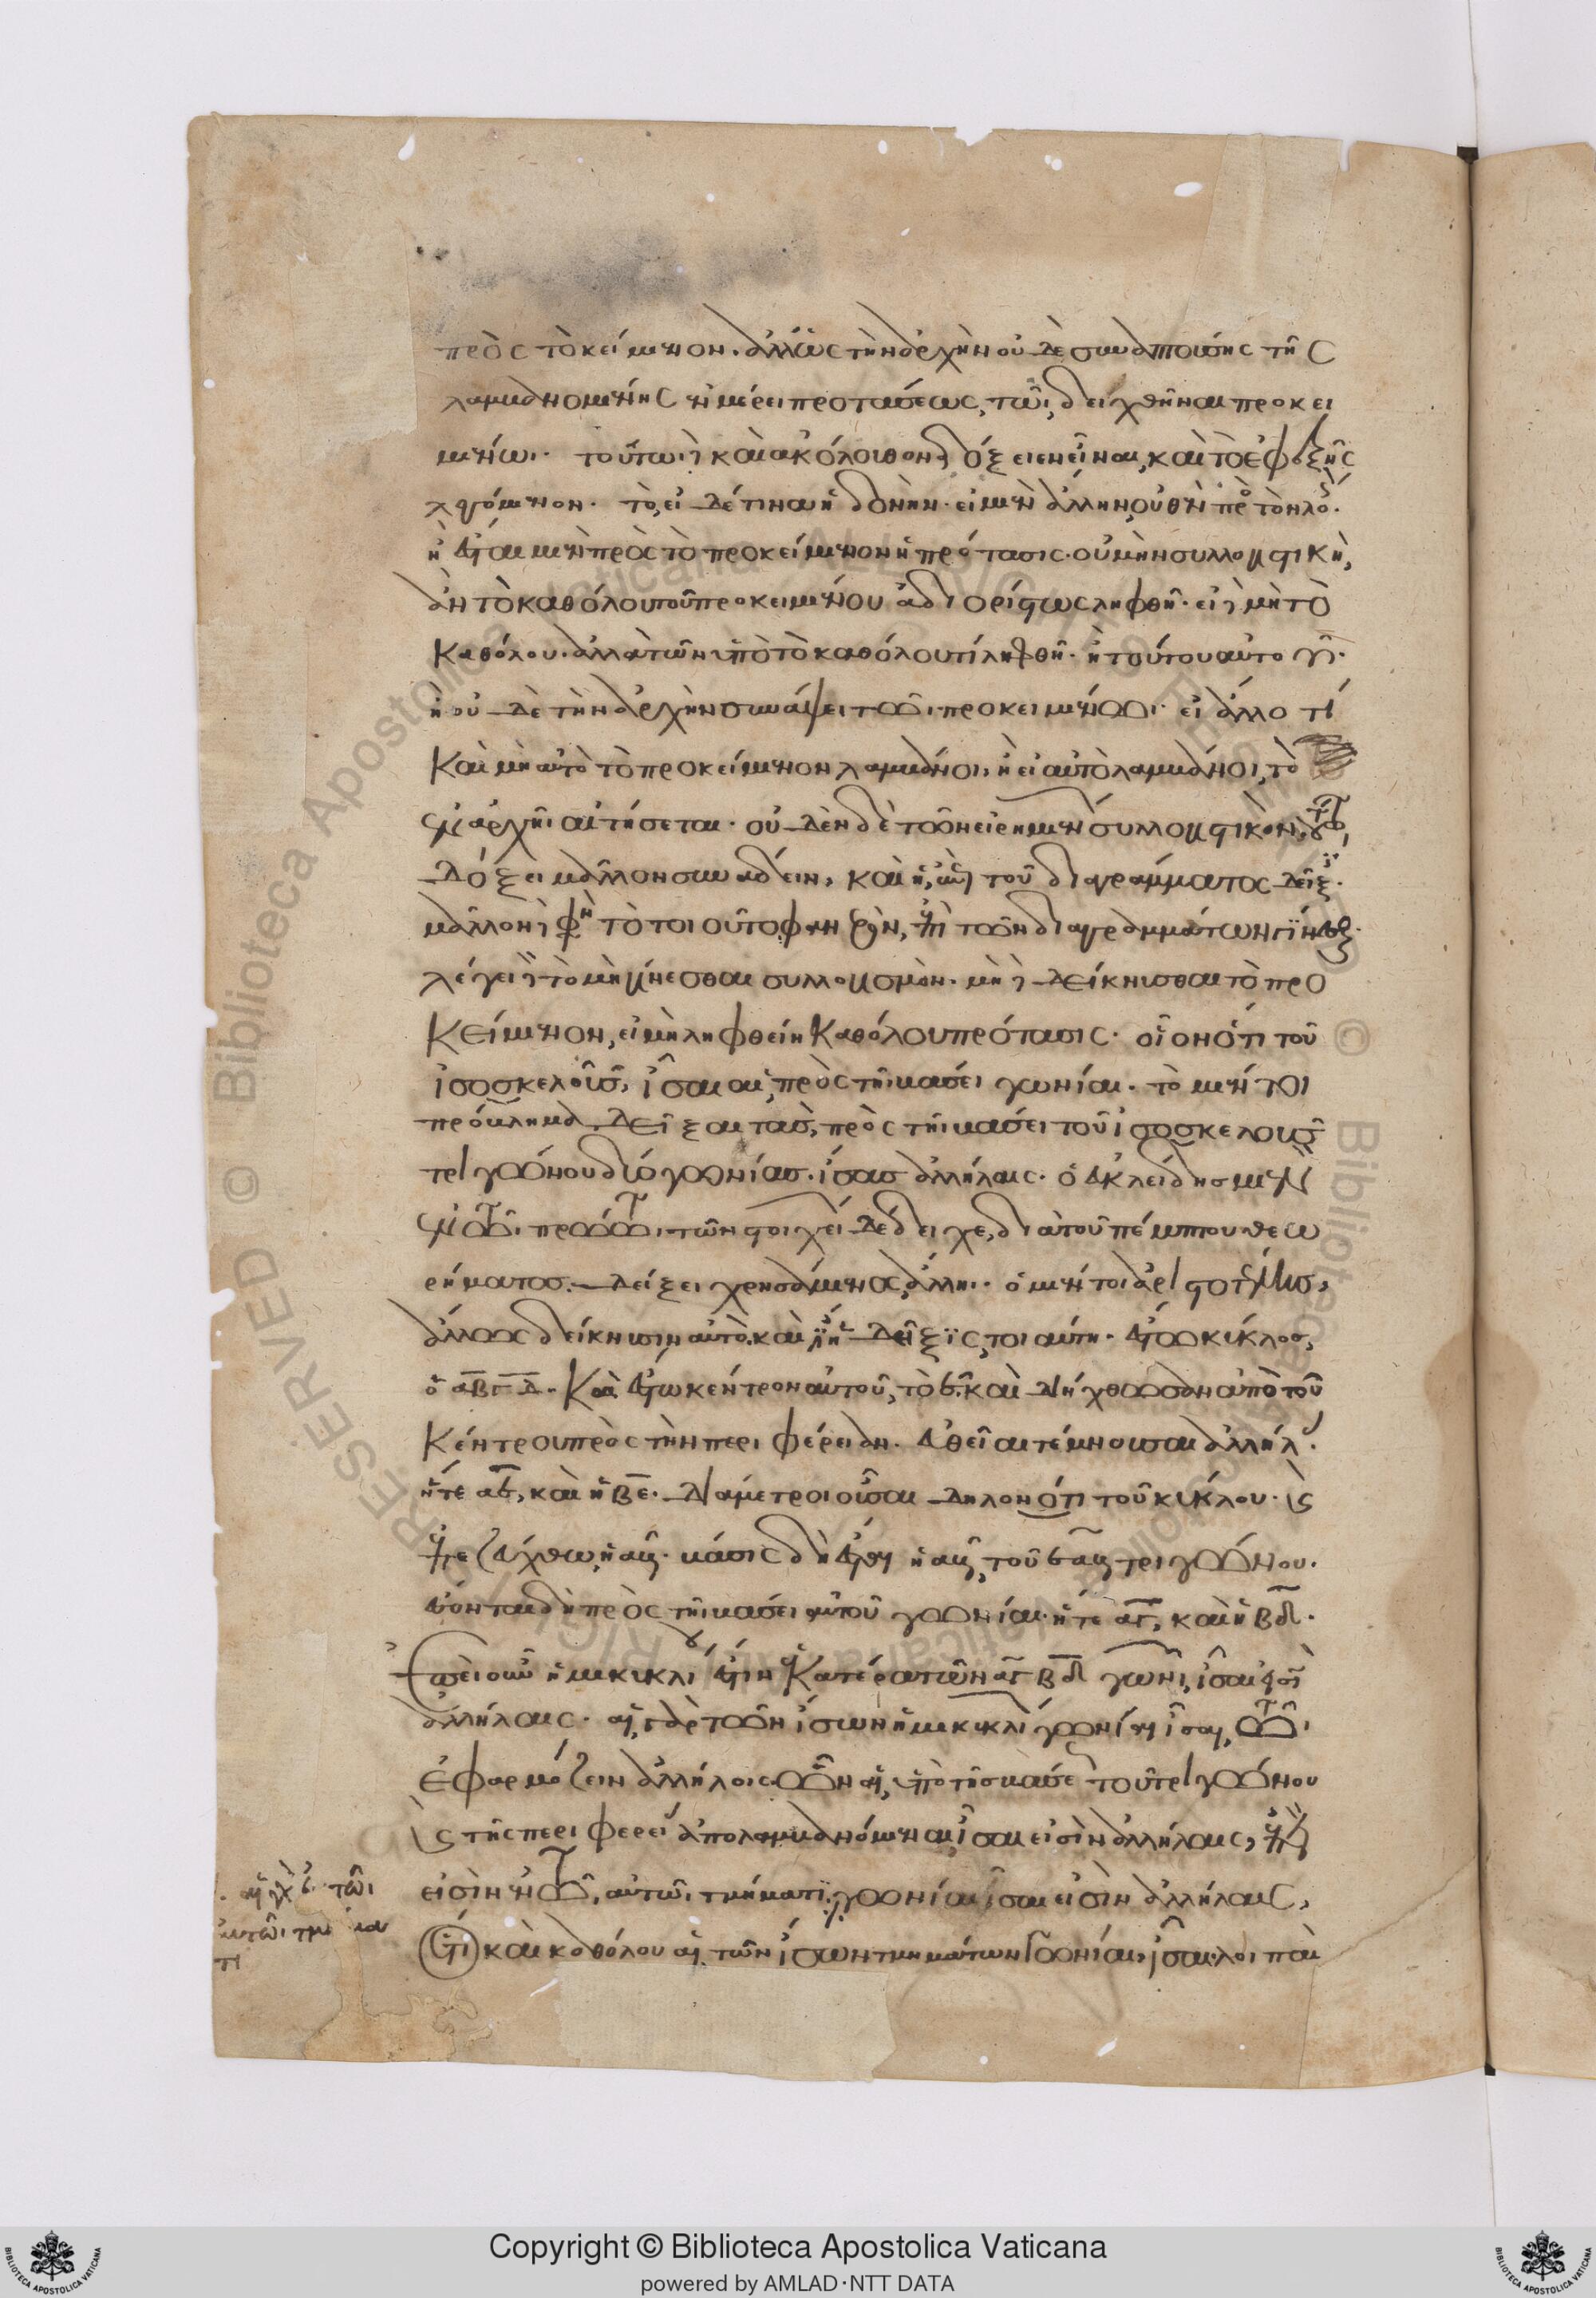 πρὸς τὸ κείμενον. ἄλλως τὴν ἀρχὴν οὐδὲ συναπτούσης τῆς
λαμβανομένης ἐν μέρει προτάσεως, τῶι δειχθῆναι προκει
μένωι. τούτωι δὲ καὶ ἀκόλουθον δόξειεν εἶναι, καὶ τὸ ἐφεξῆς
λεγόμενον. τὸ, εἰ δέ τινα ἡδονὴν. εἰ μὲν ἄλλην, οὐθὲν πρὸς τὸν λό.
ἢ ἔσται μὲν πρὸς τὸ προκείμενον ἡ πρότασις. οὐ μὴν συλλογιστικὴ,
ἂν τὸ καθόλου τοῦ προκειμένου ἀδιορίστως ληφθῆ. εἰ δὲ μὴ τὸ
καθόλου. ἀλλὰ τῶν ὑπὸ τὸ καθόλου τί ληφθῆ. ἢ τούτου αὐτο
ἢ οὐδὲ τὴν ἀρχὴν συνάψει τῶι προκειμένωι. εἰ ἄλλο τί
καὶ μὴ αὐτὸ τὸ προκείμενον λαμβάνοι, ἢ εἰ αὐτὸ λαμβάνοι, τὸ
ἐν ἀρχῆι αἰτήσεται. οὐδὲν δὲ τῶν εἰρημένων συλλογιστικὸν.
δόξει μᾶλλον συνάδειν, καὶ ἡ ἐπὶ τοῦ διαγράμματος δεῖξ.
μᾶλλον δὲ φη τὸ τοιοῦτο φανερὸν, ἐπὶ τῶν διαγραμμάτων γίνεσ.
λέγει δὲ τὸ μὴ γίνεσθαι συλλογισμὸν. μὴ δὲ δείκνυσθαι τὸ προ
κείμενον, εἰ μὴ ληφθείη καθόλου πρότασις. οἷον ὅτι τοῦ
ἰσοσκελοῦς, ἴσαι αἱ πρὸς τῆι βάσει γωνίαι. τὸ μέν τοι
πρόβλημα, δεῖξαι τὰς πρὸς τῆι βάσει τοῦ ἰσοσκελοῦς
τριγώνου δύο γωνίας. ἴσας ἀλλήλαις. ὁ εὐκλείδης μὲν
ἐν τῶι πρώτωι τῶν στοιχεί δέδειχε, διὰ τοῦ πέμπτου θεω
ρήματος. δείξει χρησάμενος ἄλληι. ὁ μέν τοι ἀριστοτέλης,
ἄλλως δείκνυσιν αὐτὸ. καὶ ἔστιν ἡ δεῖξις τοιαύτη. ἔστω κύκλος,
ὁ αβγδ. καὶ ἔστω κέντρον αὐτοῦ, τὸ ε. καὶ διήχθωσαν ἀπὸ τοῦ
κέντρου πρὸς τὴν περιφέρειαν. εὐθεῖαι τέμνουσαι ἀλλήλ.
ἥτε αε, καὶ ἡ βε. διάμετροι οὖσαι δηλονότι τοῦ κύκλου. καὶ
ἐπεζεύχθω ἡ αβ. βάσις δὴ ἔσται ἡ αβ τοῦ εαβ τριγώνου.
ἔσονται δὴ πρὸς τῆι βάσει αὐτοῦ γωνίαι. ἥτε αγ, καὶ ἡ βδ.
ἐπεὶ οὖν ἡμικυκλί ἐστιν ἑκατέρα τῶν αγ βδ γωνι, ἴσαι εἰσὶ
ἀλλήλαις. αἱ γὰρ τῶν ἴσων ἡμικυκλί γωνίαι ἴσαι, τῶι
ἐφαρμόζειν ἀλλήλοις. ὧν αἱ, ὑπὸ τῆς βάσε τοῦ τριγώνου
καὶ τῆς περιφερεί ἀπολαμβανόμεναι, ἴσαι εἰσὶν ἀλλήλαις, ἐπεὶ
εἰσὶν ἐν τῶ, αὐτῶι τμήματι. γωνίαι ἴσαι εἰσὶν ἀλλήλαις,
ὅτι καὶ καθόλου αἱ τῶν ἴσων τμημάτων γωνίαι, ἴσαι. λοιπαὶ
τῶι
αὐτῶι τμήμα
τι
Copyright © Biblioteca Apostolica Vaticana
powered by AMLAD·NTT DATA